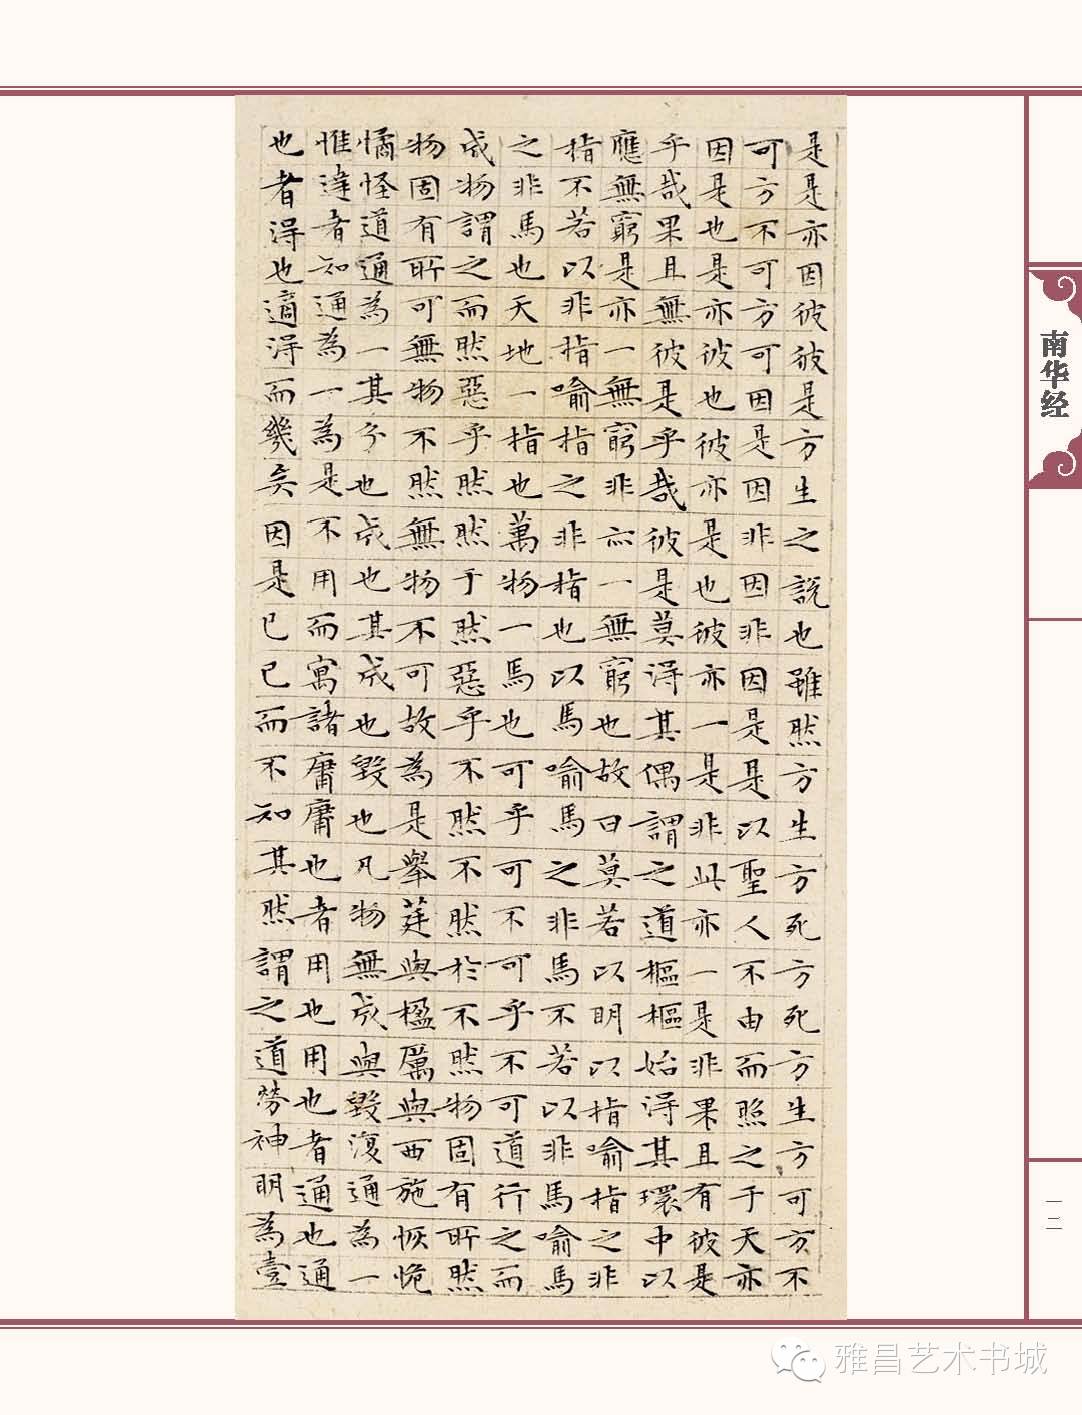 是是亦因彼彼是方生之說也雖然方生方死方死方生方可方不
可方不可方可因是因非因非因是是以聖人不由而照之于天亦
因是也是亦彼也彼亦是也彼亦一是非此亦一是非果且有彼是
乎哉果且無彼是乎哉彼是莫得其偶謂之道樞樞始得其環中以
應無窮是亦一無窮非亦一無窮也故曰莫若以明以指喻指之非
指不若以非指喻指之非指也以馬喻馬之非馬不若以非馬喻馬
之非馬也天地一指也萬物一馬也可乎可不可乎不可道行之而
成物謂之而然惡乎然然于然惡乎不然不然於不然物固有所然
物固有所可無物不然無物不可故為是舉莛與楹厲與西施恢恑
憰怪道通為一其分也成也其成也毀也凡物無成與毀復通為一
惟達者知通為一為是不用而寓諸庸庸也者用也用也者通也通
也者得也適得而幾矣因是已已而不知其然謂之道勞神明為壹
南华经
一二
雅昌艺术书城